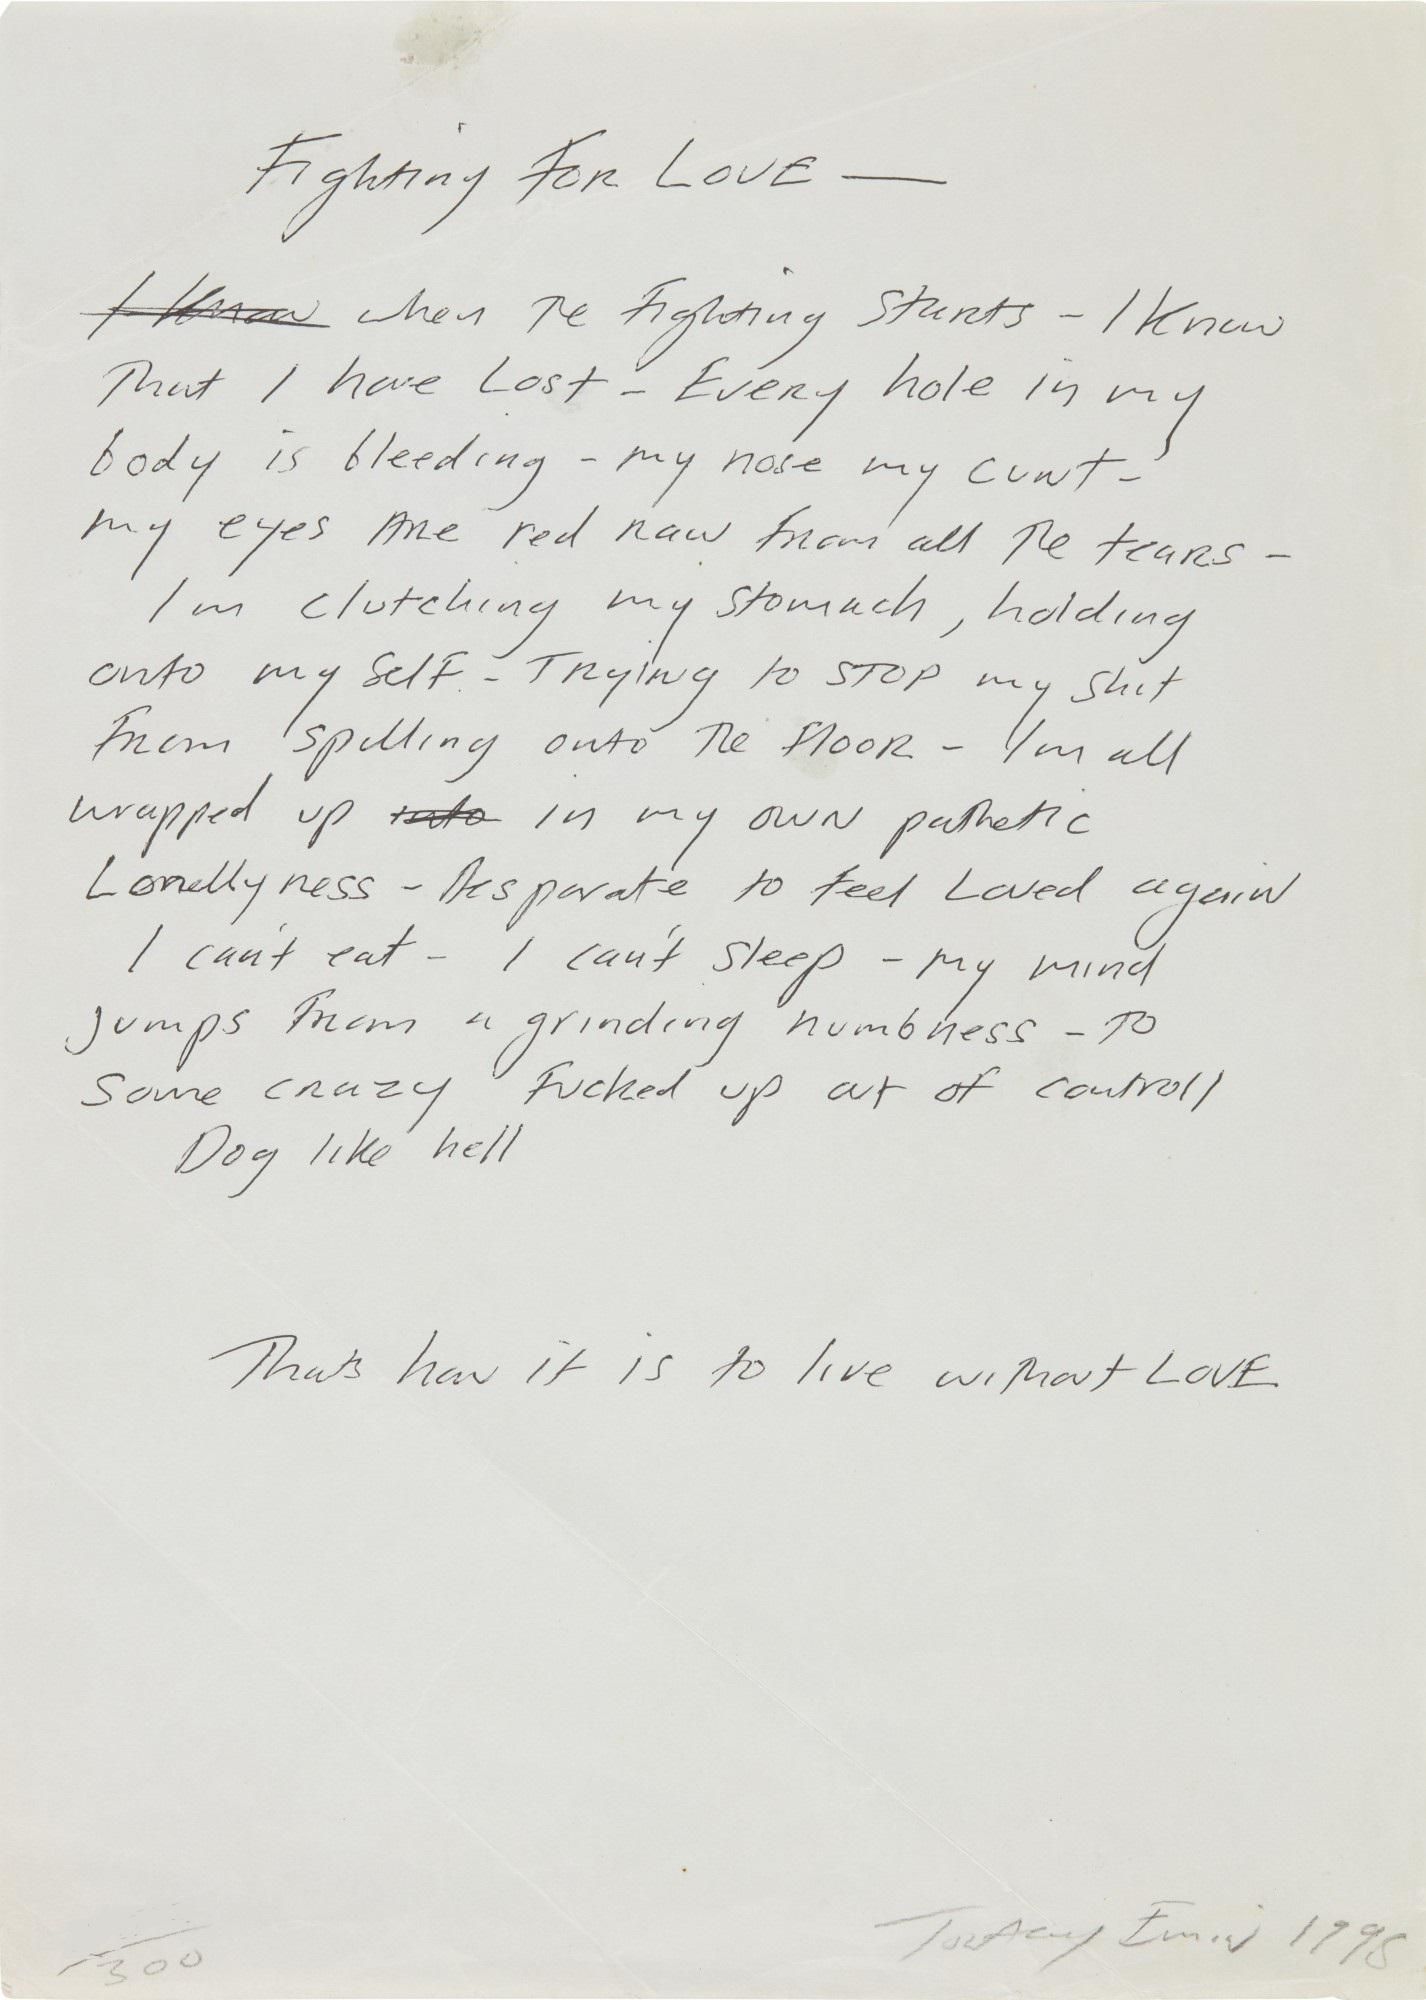 Fighting FOR LOVE —
I Know when The Fighting Starts - I Know
That I have Lost - Every hole in my
body is bleeding - my nose my cunt -
my eyes Are red raw from all The tears -
I'm clutching my stomach, holding
onto my self - Trying to STOP my shit
From spilling onto The floor - I'm all
wrapped up into in my own pathetic
Lonellyness - Desparate to feel Loved again
I can't eat - I can't sleep - my mind
jumps from a grinding numbness - To
some crazy fucked up out of controll
Dog like hell
Thats how it is to live without LOVE
300
Tracey Emin 1998